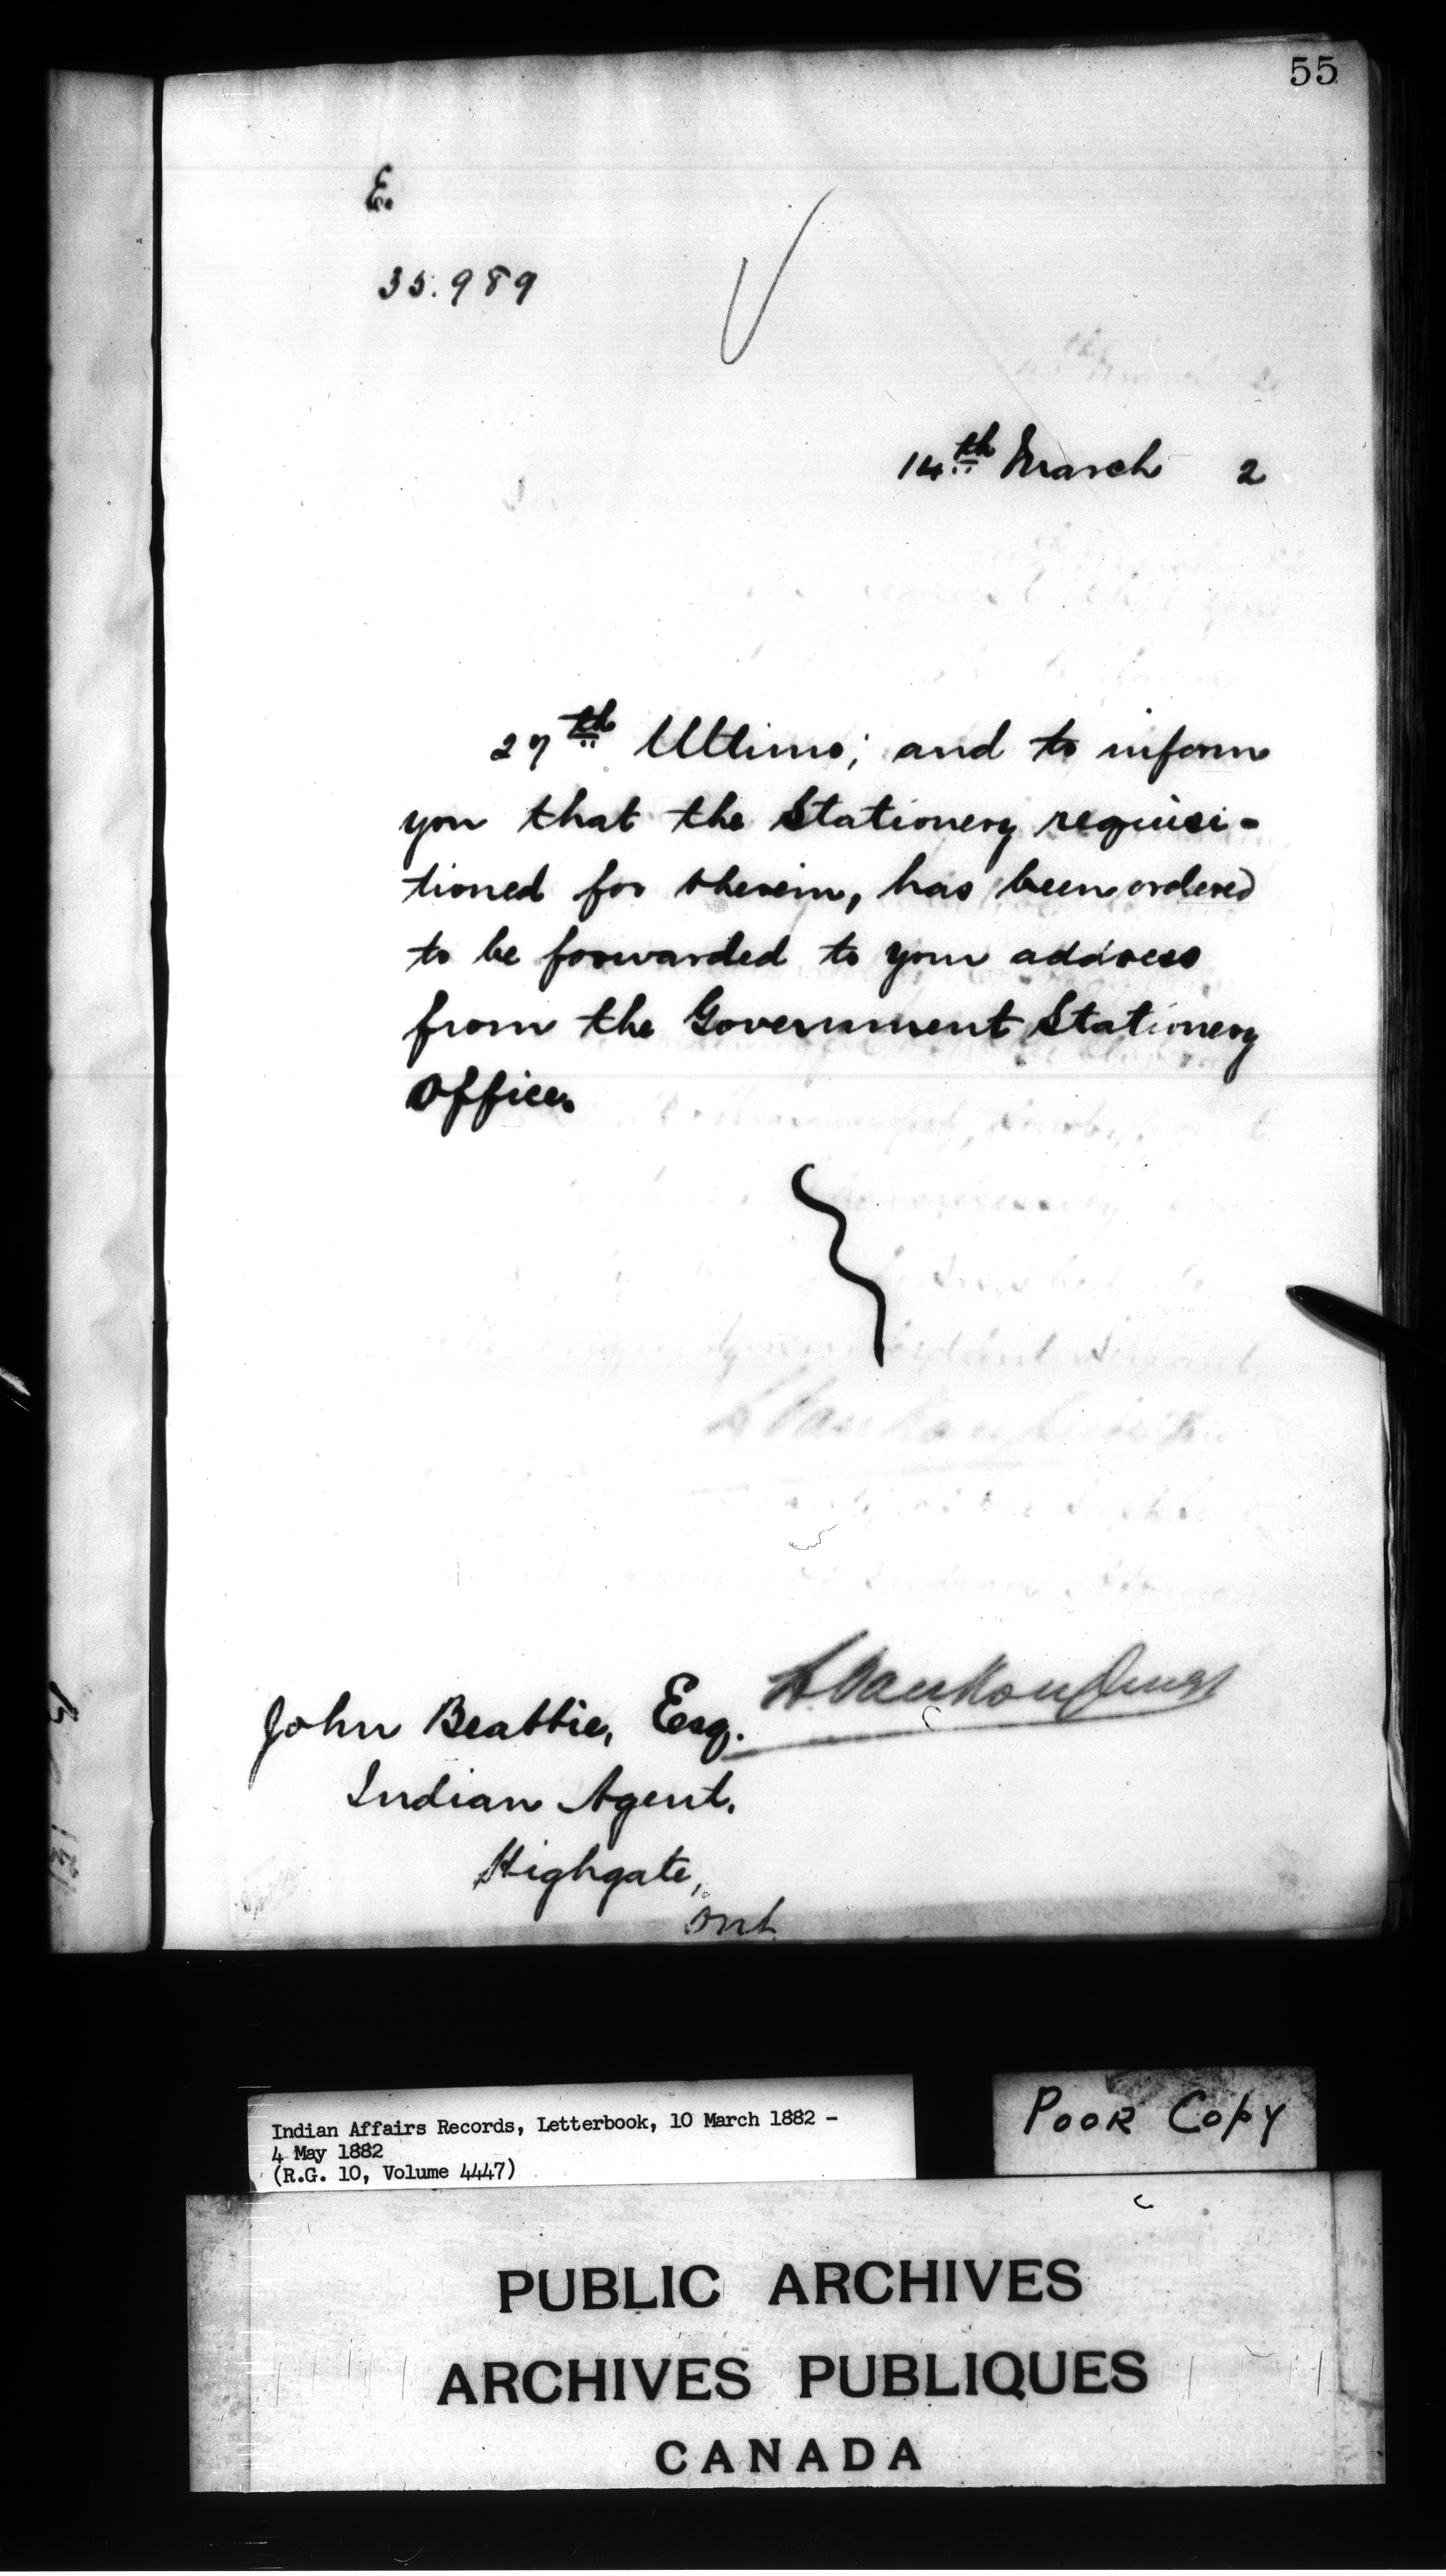 55
E.
35.989
14th March 2
27th Ultimo; and to inform
you that the Stationery requisi-
tioned for therein, has been ordered
to be forwarded to your address
from the Government Stationery
Office.
L. VanKoughnet
John Beattie, Esq.
Indian Agent.
Highgate,
Ont.
Indian Affairs Records, Letterbook, 10 March 1882 -
4 May 1882
(R.G. 10, Volume 4447)
POOR COPY
PUBLIC ARCHIVES
ARCHIVES PUBLIQUES
CANADA